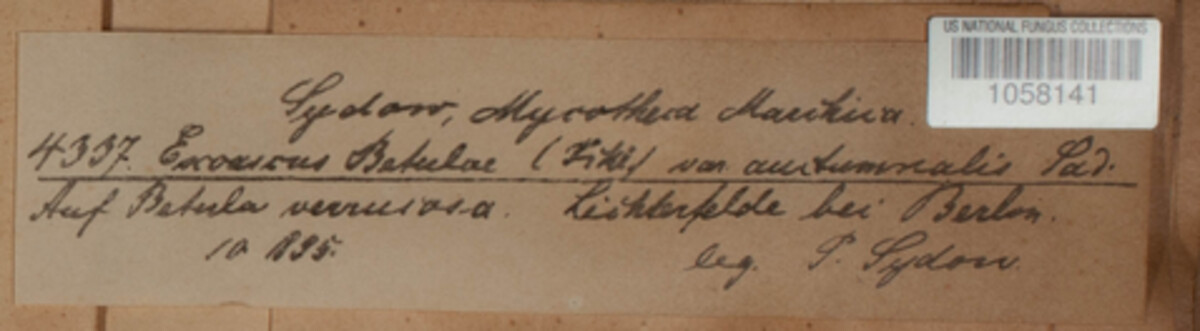 US NATIONAL FUNGUS COLLECTIONS
1058141
Sydow, Mycotheca Marchica.
4337. Exoascus Betulae (Fckl) var. auctumnalis Sad.
Auf Betula verrucosa. Lichterfelde bei Berlin.
10 895.
leg. P. Sydow.